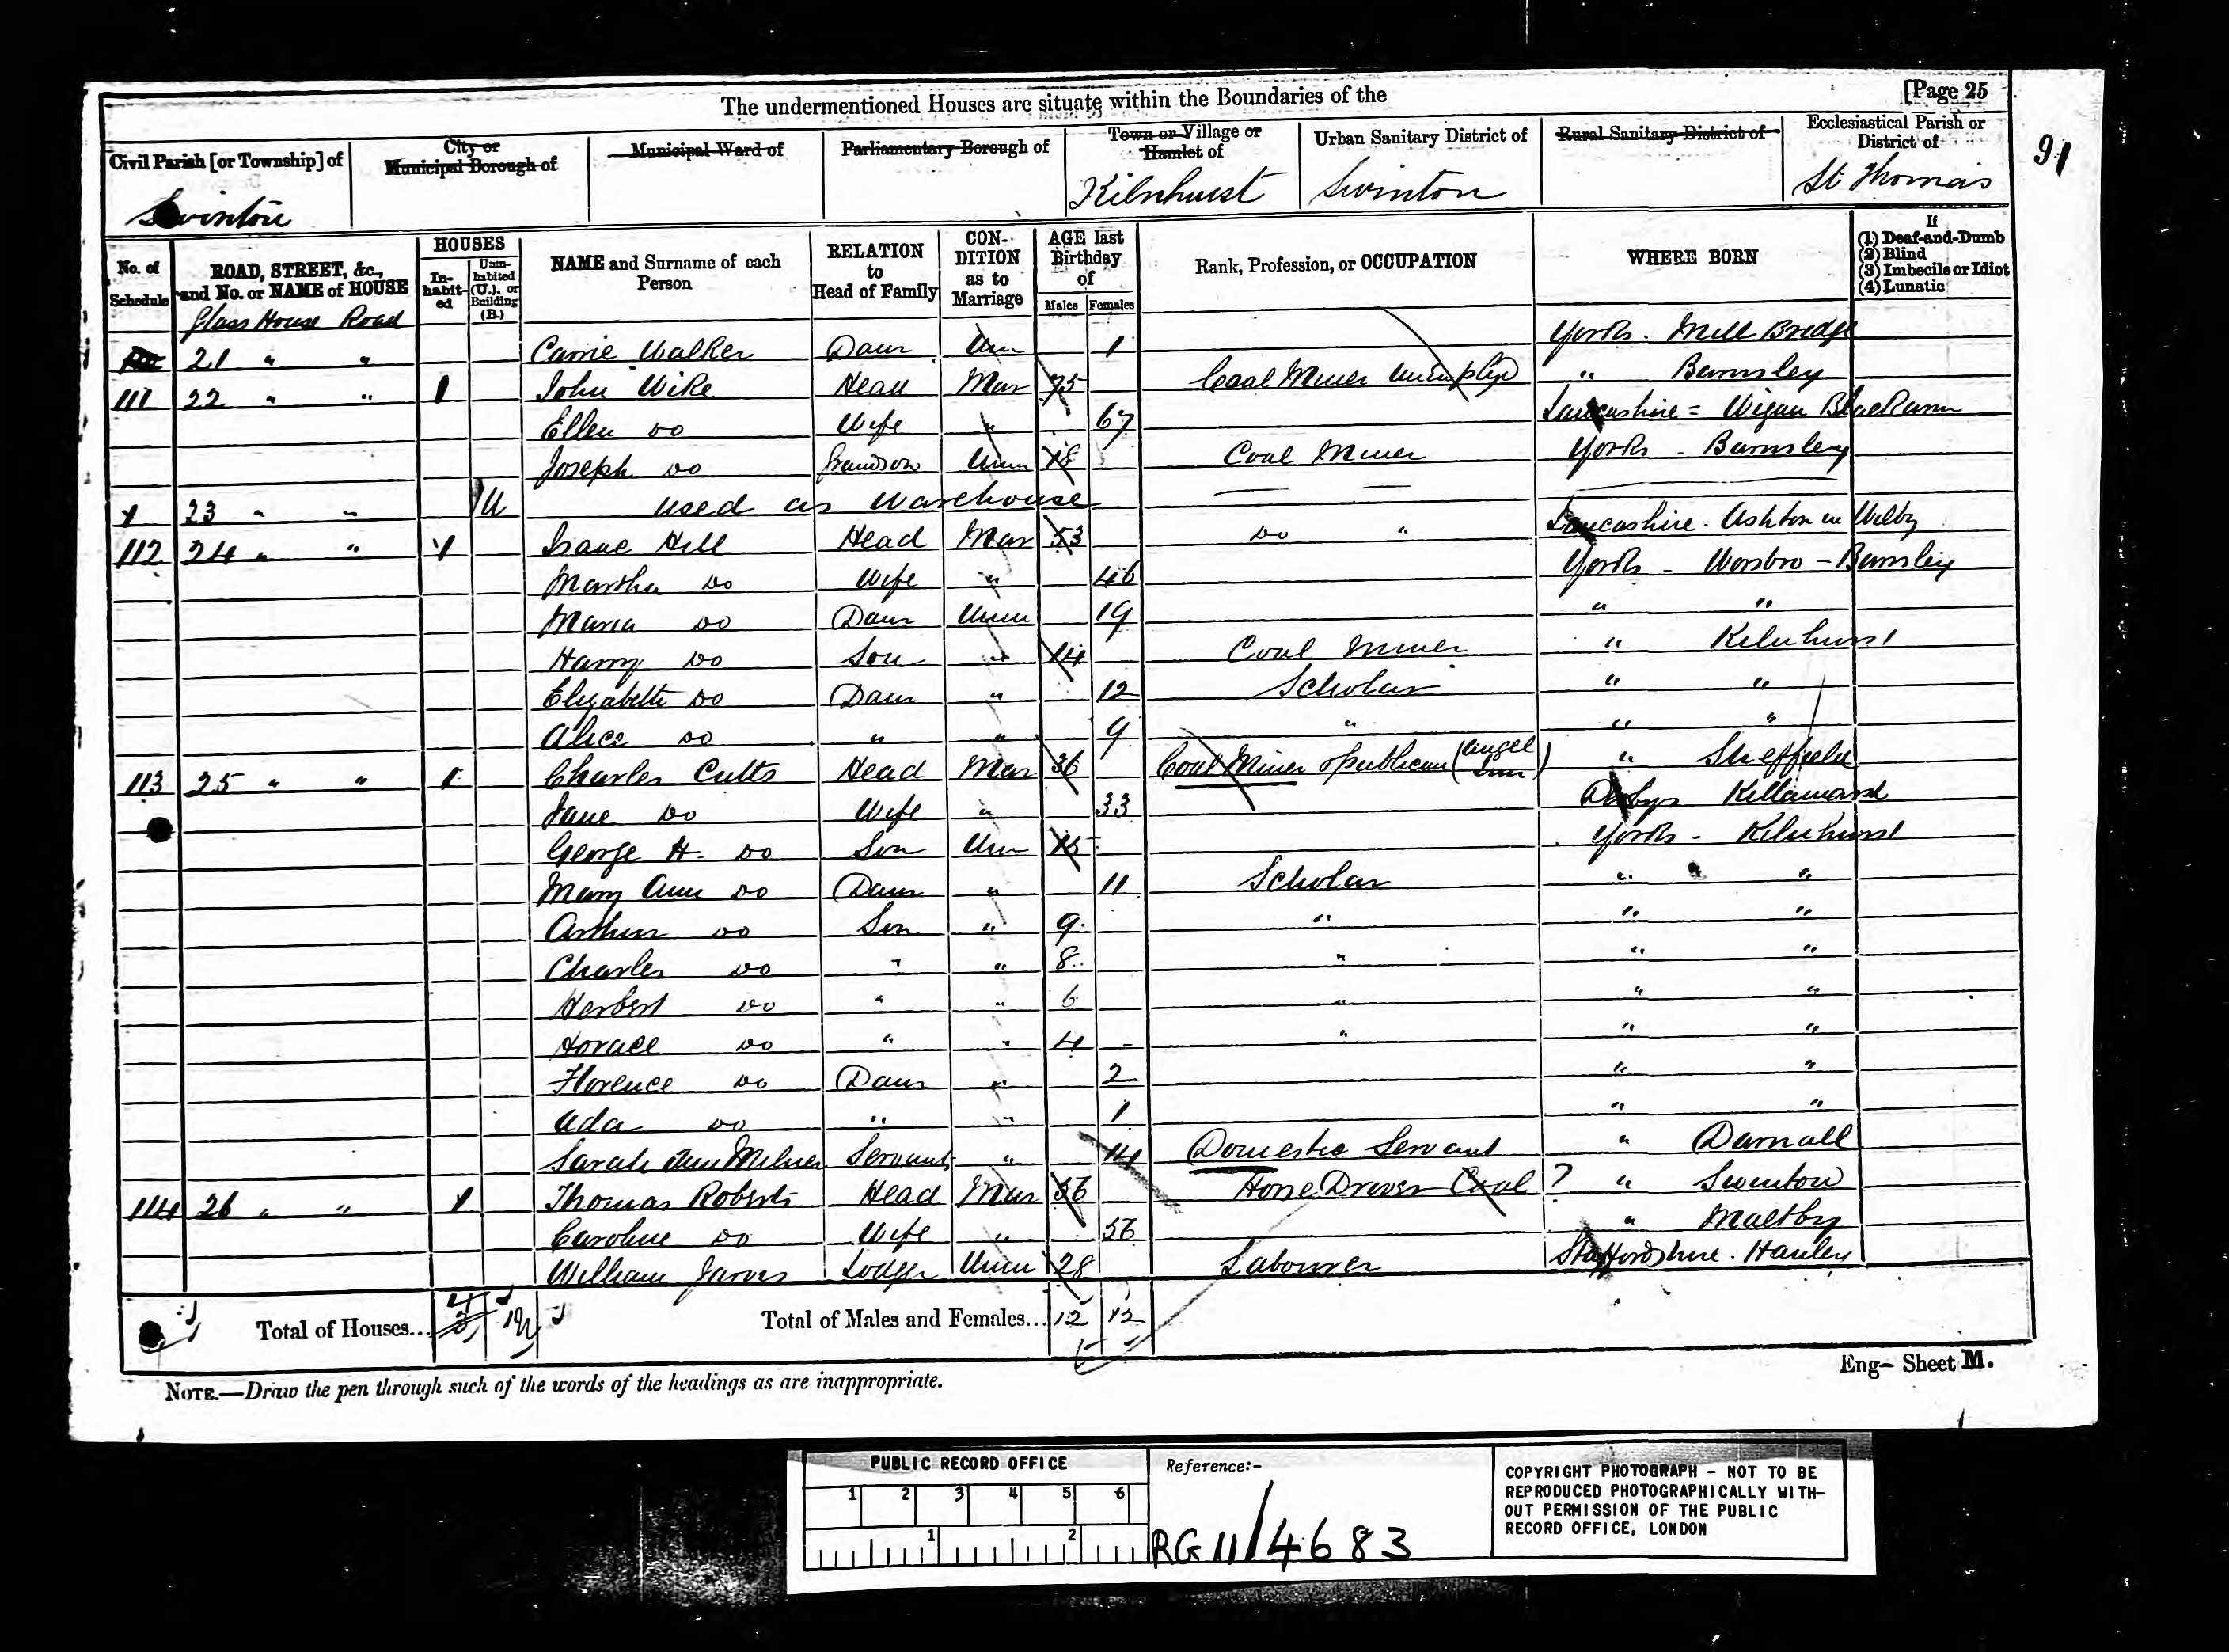 The undermentioned Houses are situate within the Boundaries of the [Page 25
Civil Parish [or Township] of City or Municipal Borough of Municipal Ward of Parliamentary Borough of Town or Village or Hamlet of Urban Sanitary District of Rural Sanitary District of Ecclesiastical Parish or District of
91
Swinton Kilnhurst Swinton St Thomas
No. of Schedule ROAD, STREET, &c., and No. or NAME of HOUSE HOUSES In-habit-ed Unin-habited (U.), or Building (B.) NAME and Surname of each Person RELATION to Head of Family CON-DITION as to Marriage AGE last Birthday of Males Females Rank, Profession, or OCCUPATION WHERE BORN If (1) Deaf-and-Dumb (2) Blind (3) Imbecile or Idiot (4) Lunatic
Glass House Road
21 " " Carrie Walker Daur Unm 1 Yorks. Mill Bridge
111 22 " " 1 John Wike Head Mar 75 Coal Miner Unemplyd " Barnsley
Ellen Do Wife " 67 Lancashire = Wigan
Joseph Do Grandson Unm 18 Coal Miner Yorks - Barnsley
23 " " 1U used as warehouse
112 24 " " 1 Isaac Hill Head Mar 53 Do " Lancashire. Ashton in
Martha Do Wife " 46 Yorks - Worsbro - Barnsley
Maria Do Daur Unm 19 " "
Harry Do Son " 14 Coal Miner " Kilnhurst
Elizabeth Do Daur " 12 Scholar " "
Alice Do " " 9 " " "
113 25 " " 1 Charles Cutts Head Mar 36 Coal Miner & Publican (Angel Inn) " Sheffield
Jane Do Wife " 33 Derbys Killamarsh
George H. Do Son Unm 15 Yorks - Kilnhurst
Mary Ann Do Daur " 11 Scholar " "
Arthur Do Son " 9 " " "
Charles Do " " 8 " " "
Herbert Do " " 6 " " "
Horace Do " " 4 - " " "
Florence Do Daur " 2 " "
Ada Do " " 1 " "
Sarah Ann Milner Servant " 14 Domestic Servant " Darnall
114 26 " " 1 Thomas Roberts Head Mar 56 Horse Driver Coal ? " Swinton
Caroline Do Wife " 56 " Maltby
William Jarvis Lodger Unm 28 Labourer Staffordshire. Hanley
Total of Houses... 4 3 Total of Males and Females... 12 12
NOTE.—Draw the pen through such of the words of the headings as are inappropriate.
Eng— Sheet M.
PUBLIC RECORD OFFICE
1 2 3 4 5 6
1 2
Reference:-
RG 11/4683
COPYRIGHT PHOTOGRAPH - NOT TO BE
REPRODUCED PHOTOGRAPHICALLY WITH-
OUT PERMISSION OF THE PUBLIC
RECORD OFFICE, LONDON